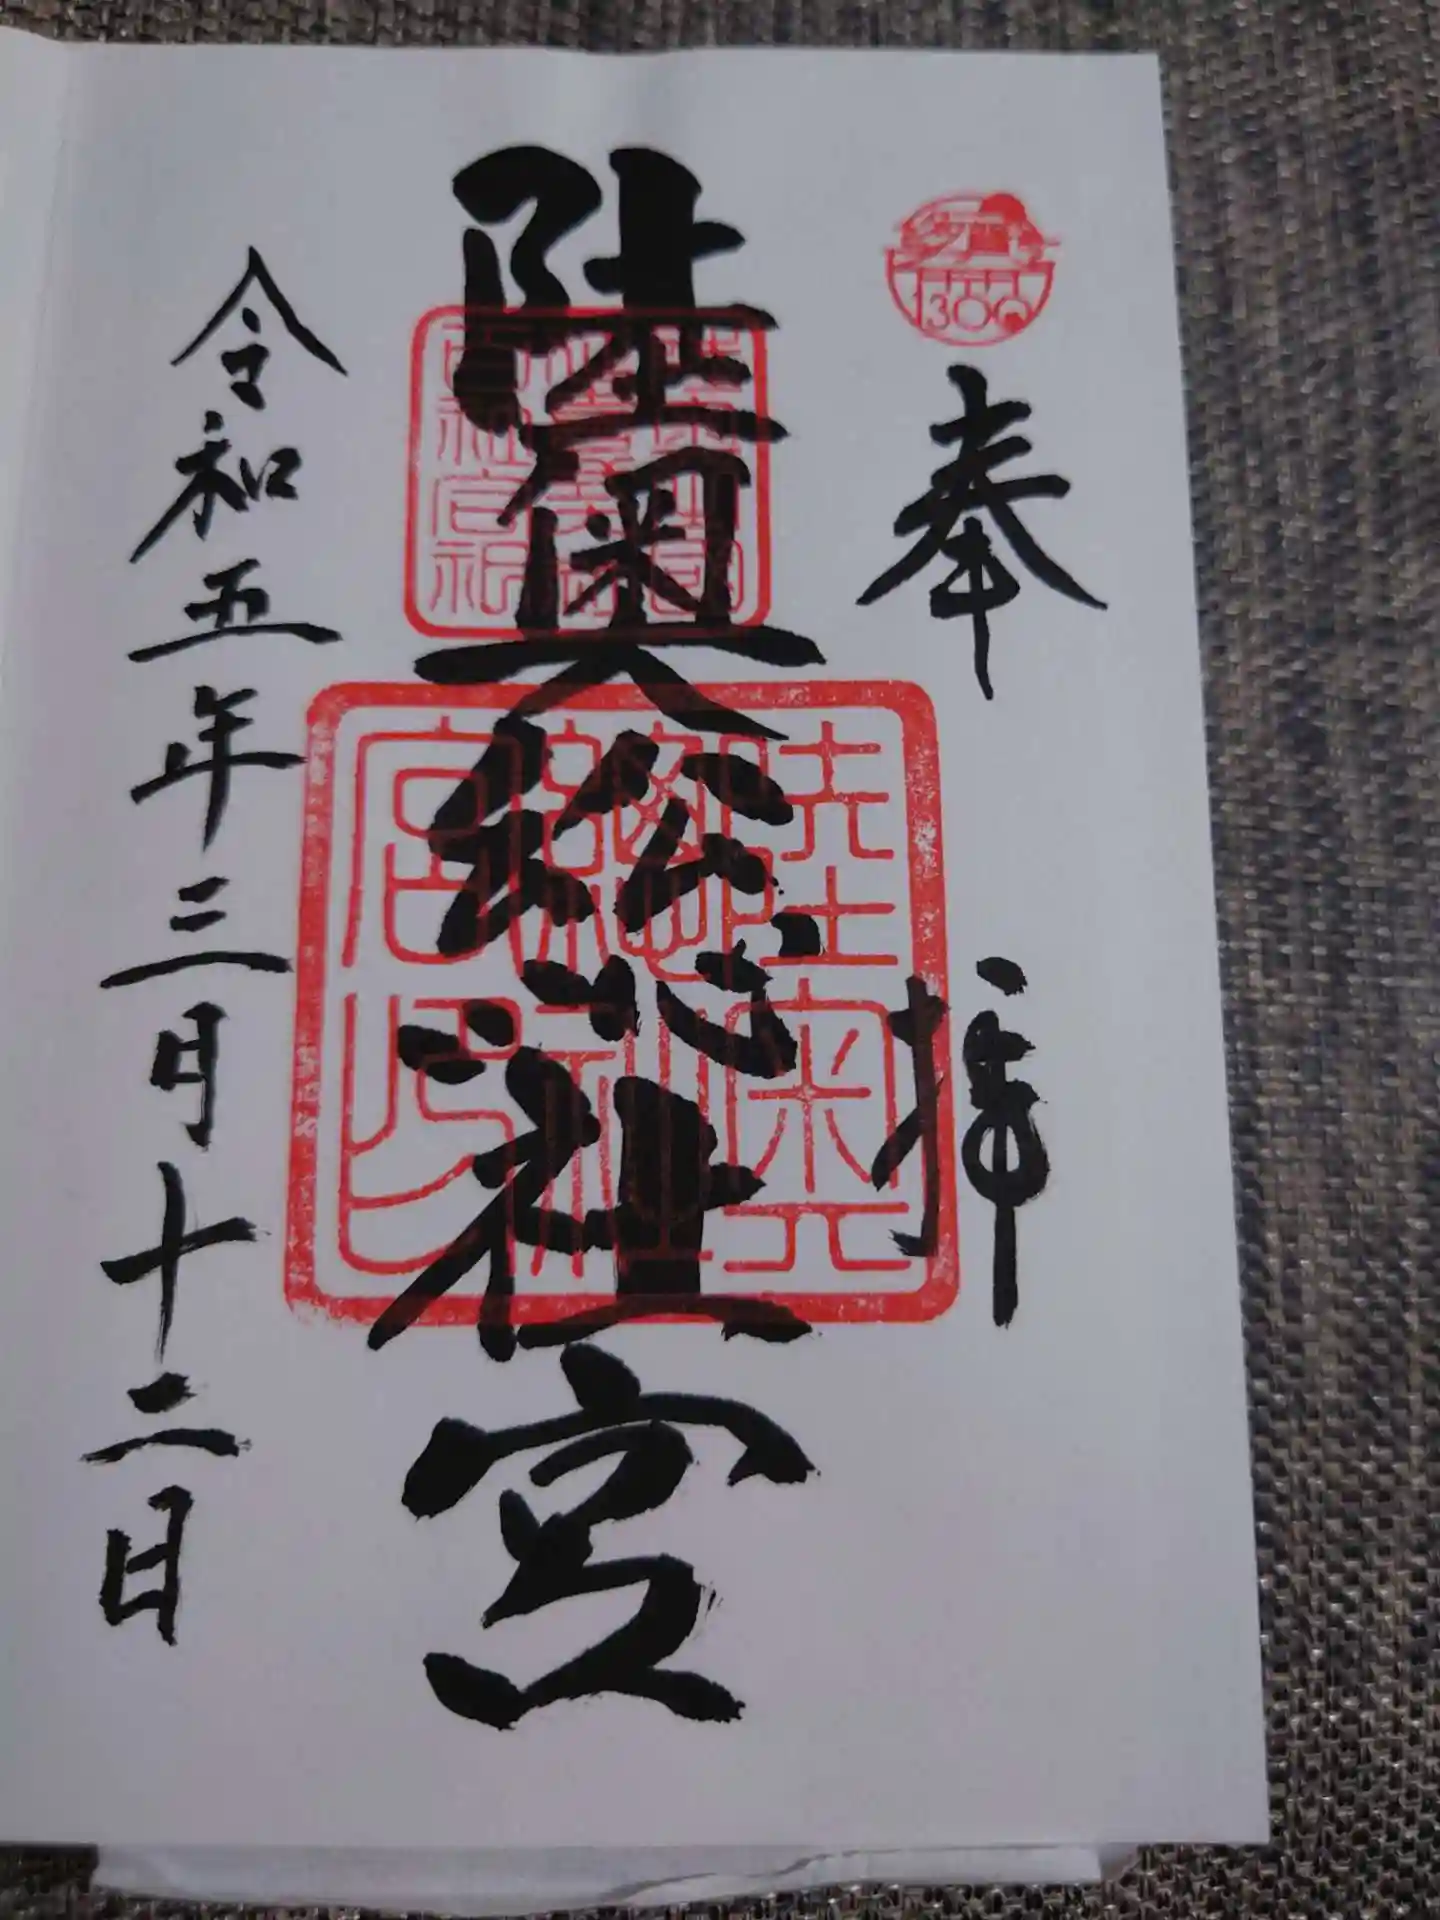 多賀城
1300
奉拝
陸奥総社宮
陸奥總社宮印
令和五年三月十二日